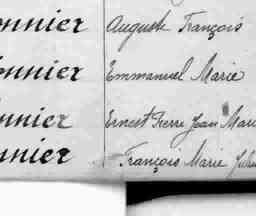 onnier Auguste François
onnier Emmanuel Marie
onnier Ernest Pierre Jean Mari
nnier François Marie Julien